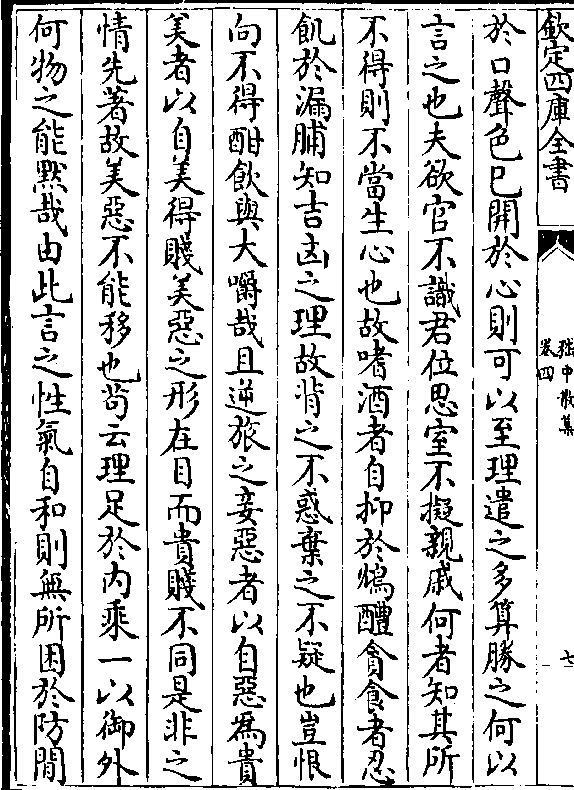 欽定四庫全書
嵇中散集
卷四
七
於口聲色已開於心則可以至理遣之多算勝之何以
言之也夫欲官不識君位思室不擬親戚何者知其所
不得則不當生心也故嗜酒者自抑於鴆醴貪食者忍
飢於漏脯知吉凶之理故背之不惑棄之不疑也豈恨
向不得酣飲與大嚼哉且逆旅之妾惡者以自惡為貴
美者以自美得賤美惡之形在目而貴賤不同是非之
情先著故美惡不能移也苟云理足於內乘一以御外
何物之能默哉由此言之性氣自和則無所困於防閑